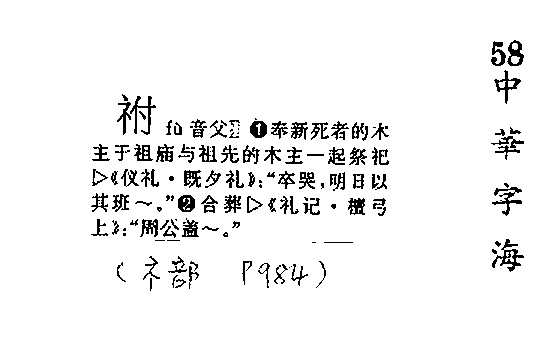 祔 fù 音父 ❶奉新死者的木
主于祖庙与祖先的木主一起祭祀
▷《仪礼·既夕礼》:“卒哭,明日以
其班～。”❷合葬▷《礼记·檀弓
上》:“周公盖～。”
(礻部 P984)
58
中華字海